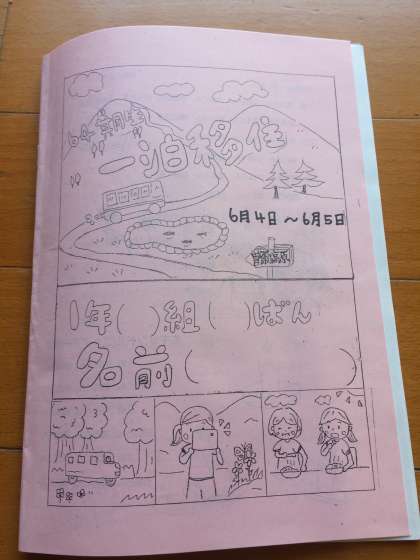 一泊移住
6月4日〜6月5日
1年( )組( )ばん
名前( )